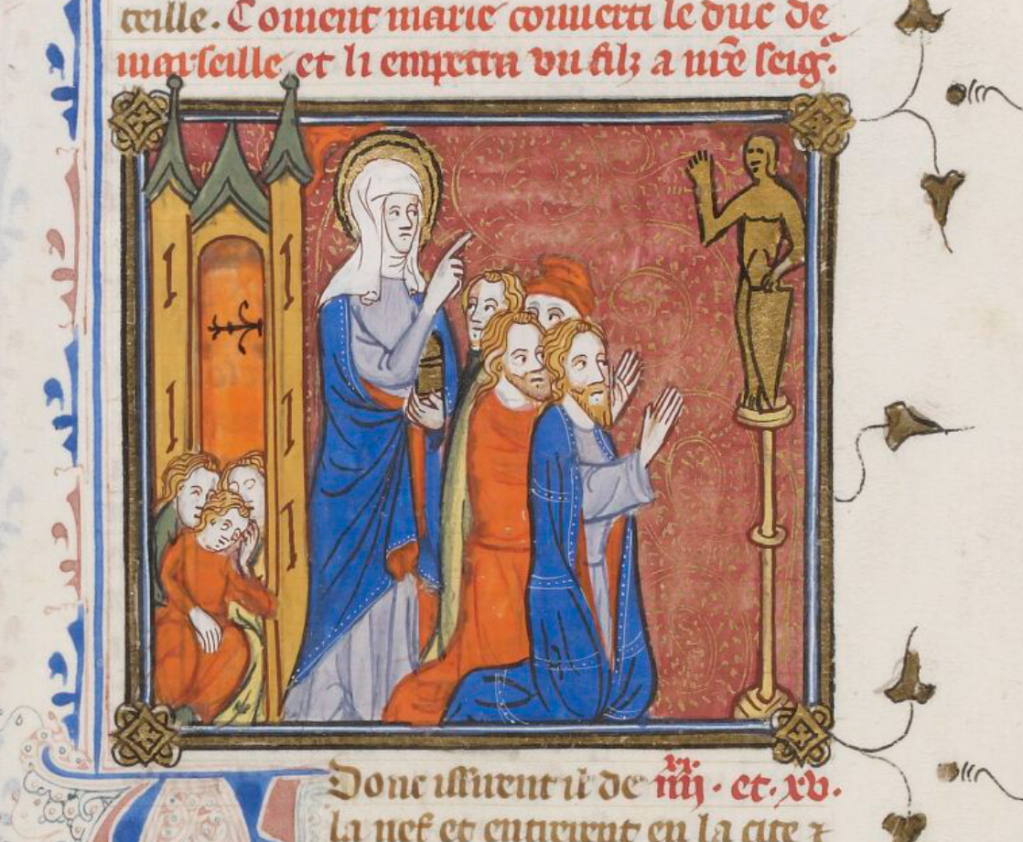 teille. Coment marie conuerti le duc de
marseille et li empetra vn filz a nr̄e seigr.
Donc issirent il de iiiixx. et. xv.
la nef et entrerent en la cite ⁊